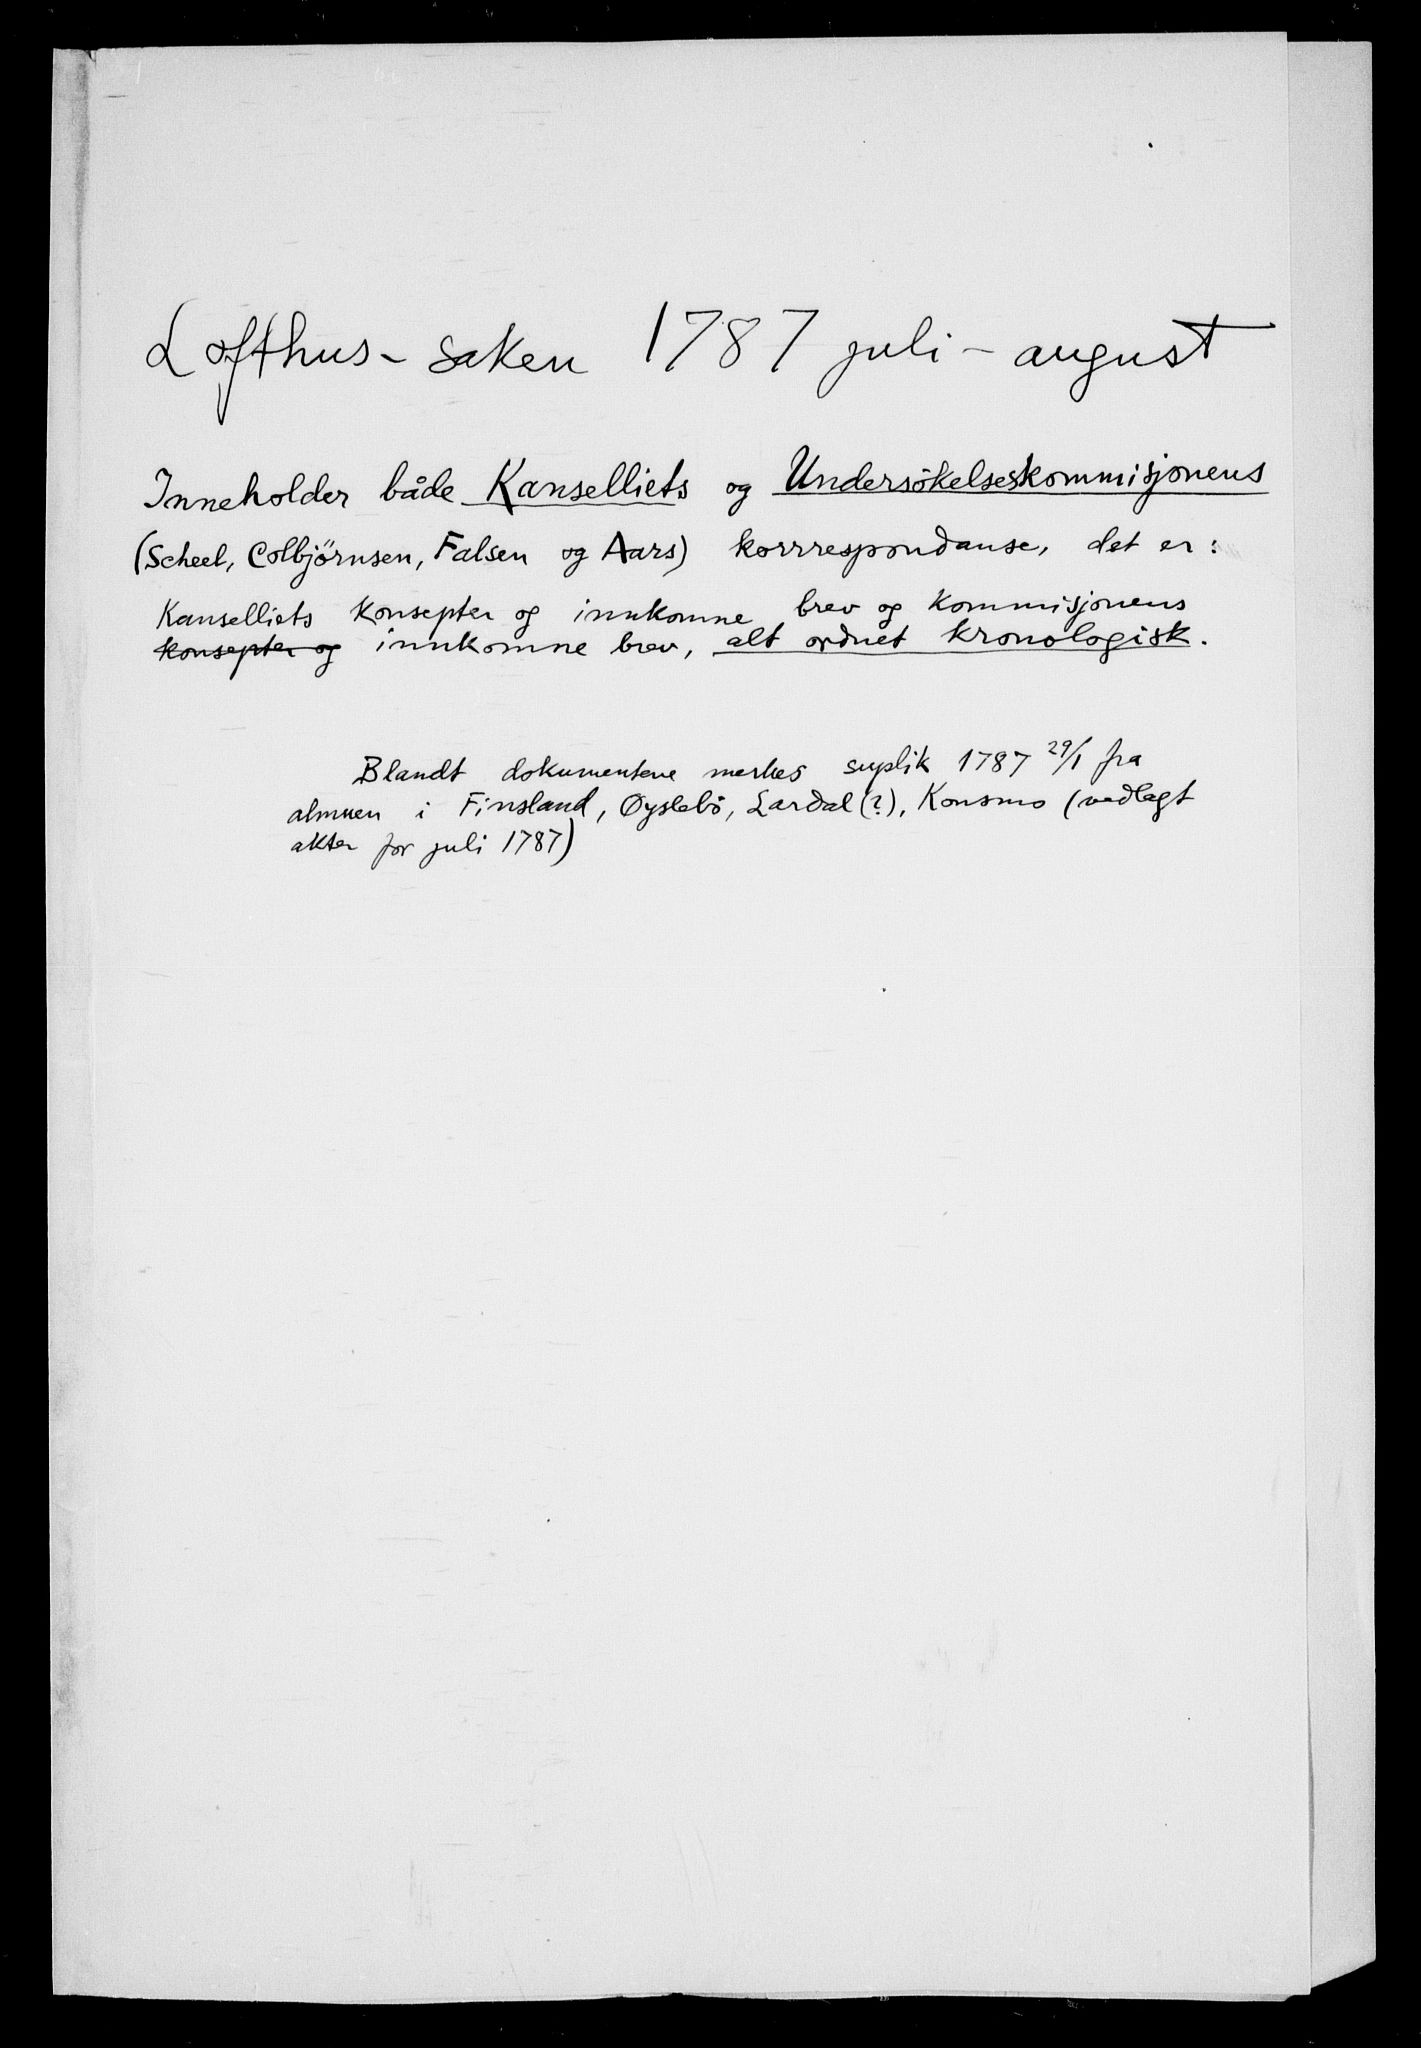 Lofthus-saken 1787 juli - august
Inneholder både Kanselliets og Undersökelseskommisjonens
(Scheel, Colbjörnsen, Falsen og Aars) korrrespondanse, det er:
Kanselliets konsepter og innkomne brev og kommisjonens
konsepter og innkomne brev, alt ordnet kronologisk.
Blandt dokumentene merkes suplik 1787 29/1 fra
almuen i Finsland, Øyslebö, Lardal (?), Konsmo (vedlagt
akter for juli 1787)